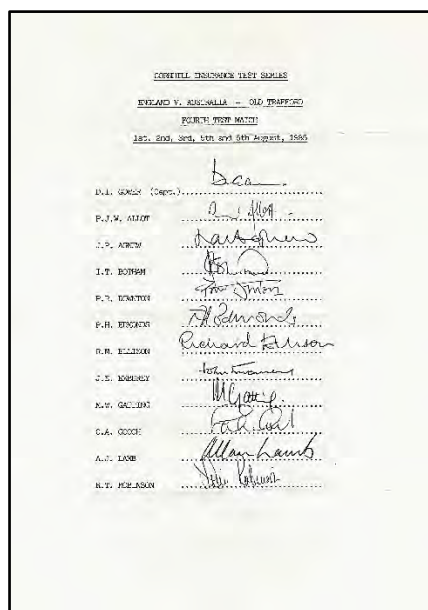 CORNHILL INSURANCE TEST SERIES
ENGLAND V. AUSTRALIA - OLD TRAFFORD
FOURTH TEST MATCH
1st. 2nd, 3rd, 5th and 6th August, 1985
D.I. GOWER (Capt.)
P.J.W. ALLOT
J.P. AGNEW
I.T. BOTHAM
P.R. DOWNTON
P.H. EDMONDS P H Edmonds
R.M. ELLISON Richard Ellison
J.E. EMBUREY
M.W. GATTING M Gatting
G.A. GOOCH
A.J. LAMB Allan Lamb
R.T. ROBINSON